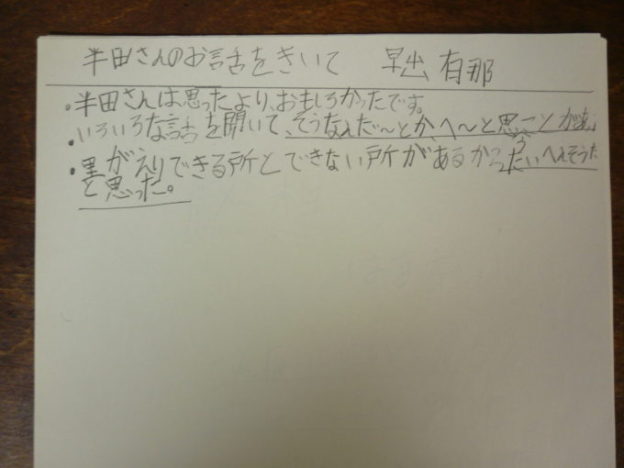 半田さんのお話をきいて 早出 有那
・半田さんは思ったより、おもしろかったです。
・いろいろな話を聞いて、そうなんだ〜とかへ〜と思うことがあ
・里がえりできる所とできない所があるからたいへんそうだ
と思った。